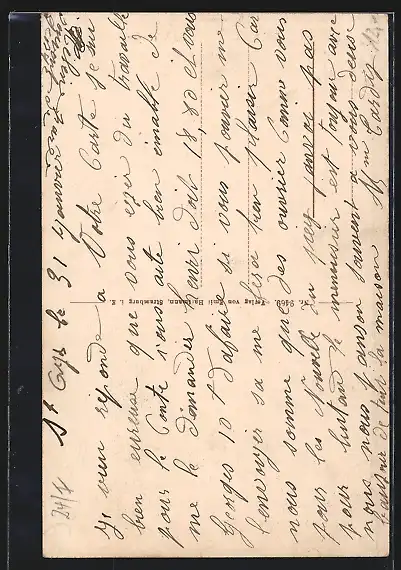 St Cyr le 31 Janvier
Je vien réponde a Votre Carte je sui
bien eureuse que vous ayer du travaille
pour le Conte vous aute bien aimable de
me le demander Henri doit 18,80 et vous
Georges 10 t dafaire si vous pouvier me
l'envoyer sa me fera bien plaisir Car
nous somme que des ouvrier Comme vous
pour les Nouvelle du pay pas
pour lintan le menuisier est toujour avec
nous nous panson souvent a vous deux
toujour de sur la maison Mme Cardis
Nr. 9469. Verlag von Emil Hartmann, Strassburg i. E.
24/7